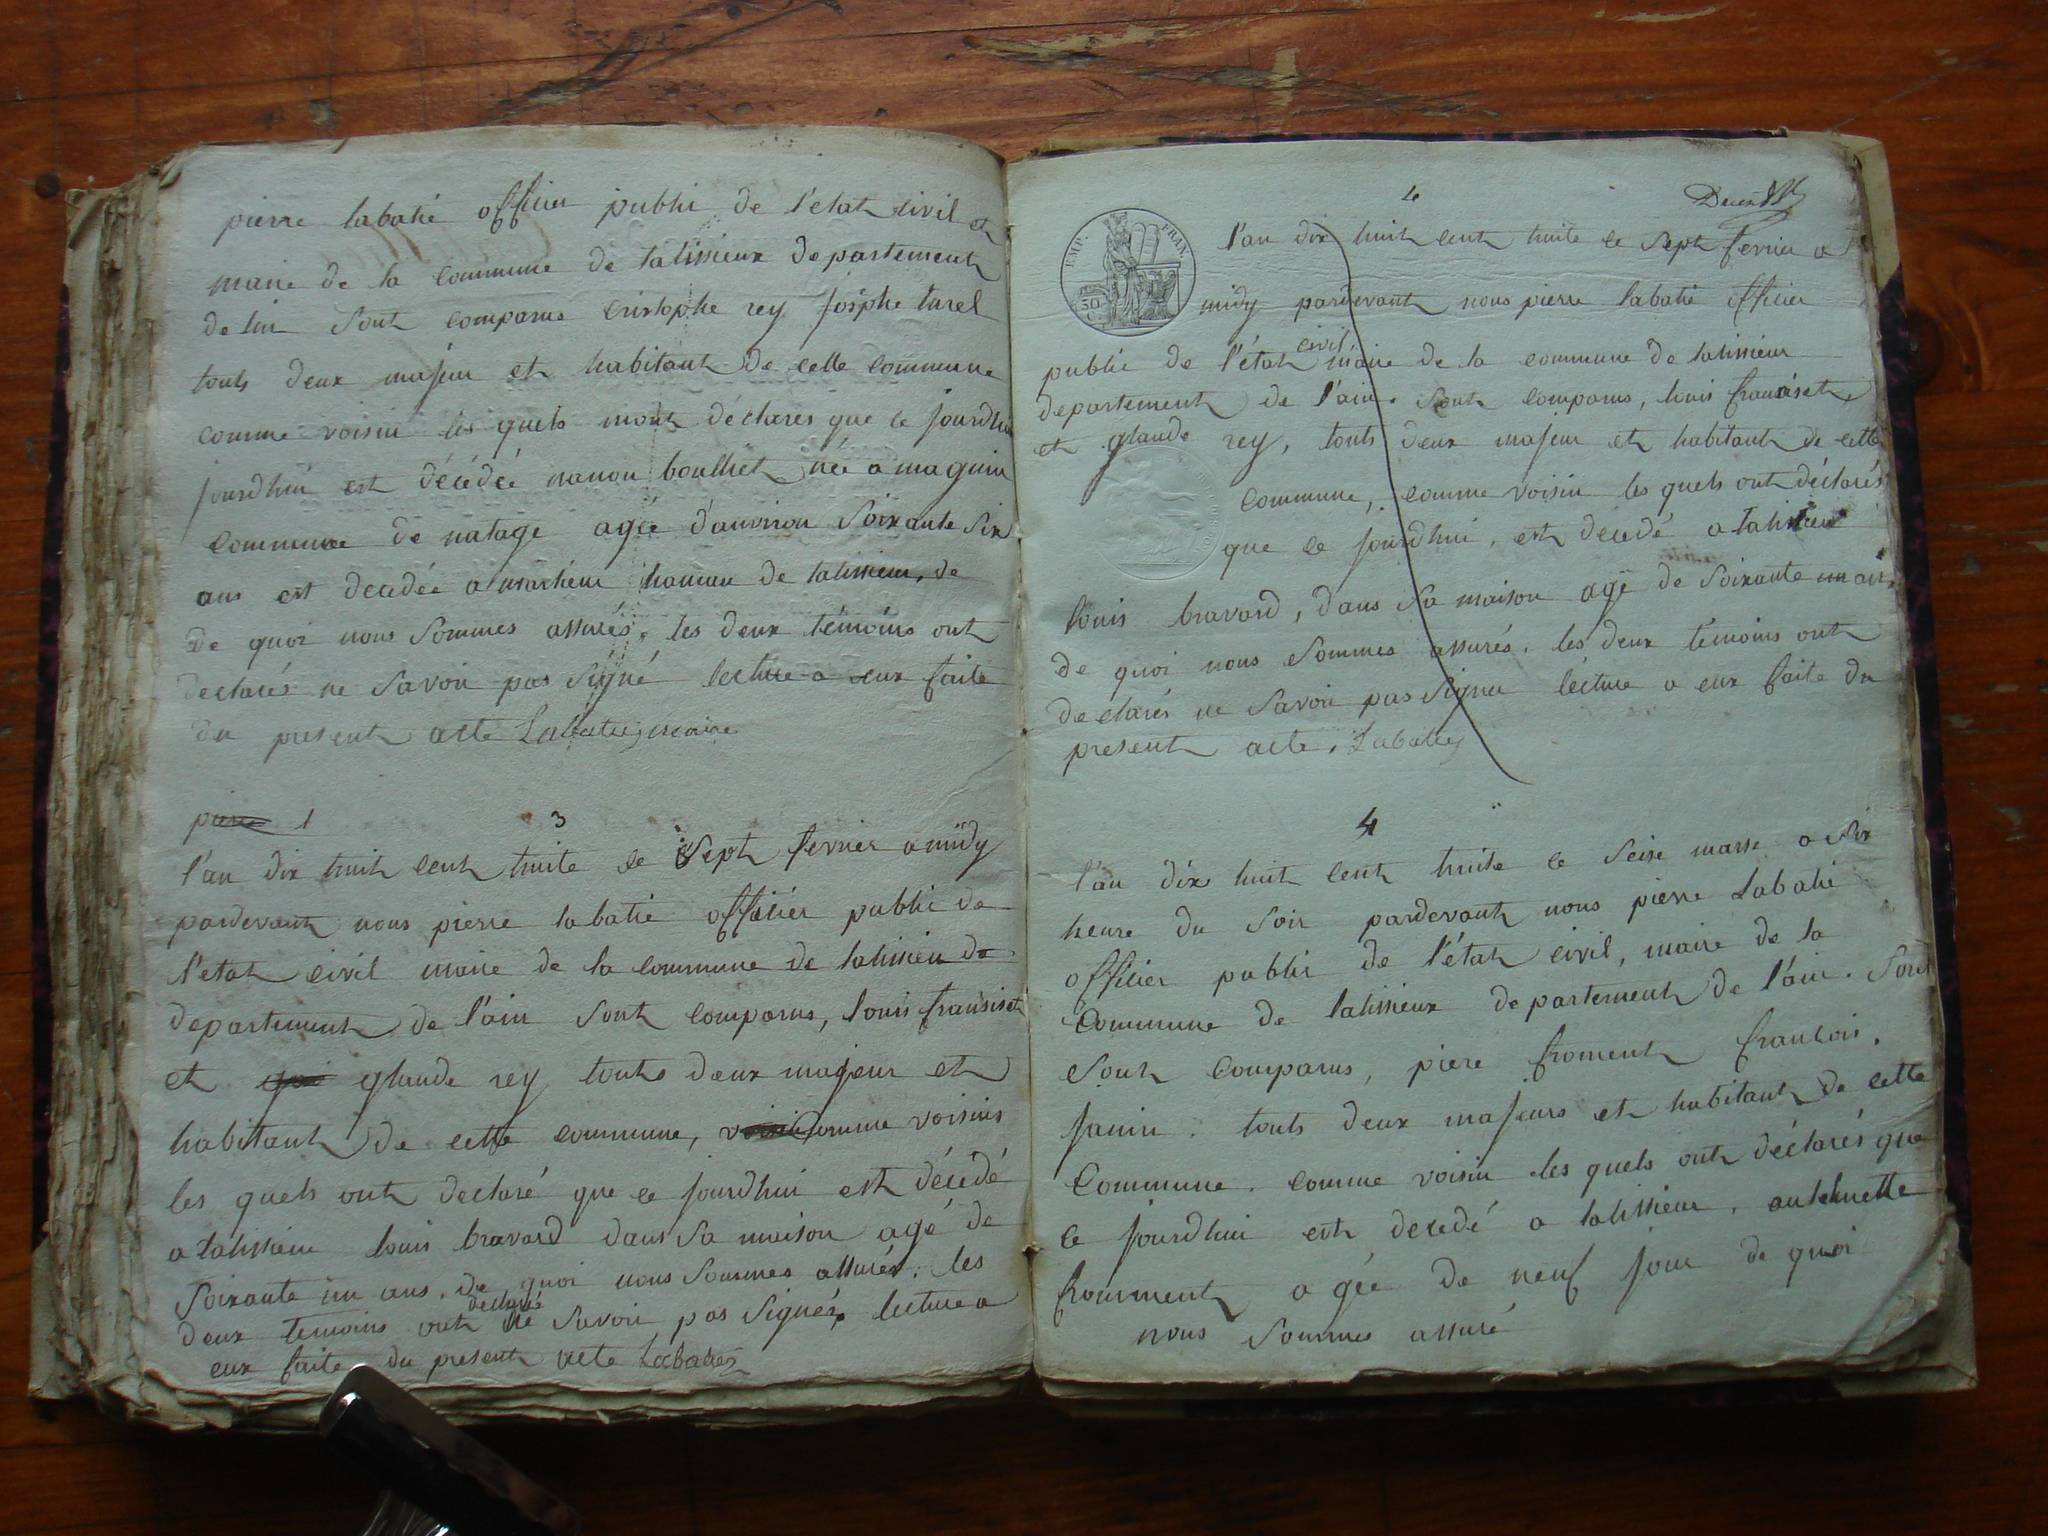 pierre labatié officier public de l'etat civil et
maire de la commune de talissieux departement
de lin sont comparus cristophe rey josphe turel
touts deux majeur et habitant de cette commune
comme voisin les quels mont déclarés que ce jourdhui
jourdhui est décédée nanon boulliet née a maguin
commune de natage agée d'anviron soixante six
ans est decedée a marlieu hameau de talissieu, de
de quoi nous sommes assurés, les deux témoins ont
declarés ne savoir pas signé lecture a eux faite
du present acte Labatie maire
pierre 1
3
l'an dix huit cent trente ce sept fevrier a midy
pardevant nous pierre labatié officiér public de
l'etat civil maire de la commune de talissieu de
departement de l'ain sont comparus, louis fransiset
et glaude rey touts deux majeur et
habitant de cette commune, voisin comme voisins
les quels ont declaré que ce jourdhui est décédé
a talissieu louis bravard dans sa maison agé de
soixante un ans, de quoi nous sommes assurés. les
deux temoins ont declaré ne savoir pas signér, lecture a
eux faite du present acte Labatie
4
l'an dix huit cent trente ce sept fevrier a
midy pardevant nous pierre labatié officier
public de l'état civil maire de la commune de talissieu
departement de l'ain. sont comparus, louis fransiset,
et glaude rey, touts deux majeur et habitant de cette
commune, comme voisin les quels ont déclarés
que ce jourdhui, est décédé a talissieu
louis bravard, dans sa maison agé de soixante un an,
de quoi nous sommes assurés. les deux témoins ont
declarés ne savoir pas signer lécture a eux faite du
present acte, Labatie
EMP. FRAN.
50 C.
4
l'an dix huit cent trente ce seise marse a six
heure du soir pardevant nous pierre Labatié
officier public de l'état civil, maire de la
Commune de talissieux departement de l'ain. sont
sont comparus, piere froment francois,
janin. touts deux majeurs et habitant de cette
Commune. comme voisin les quels ont déclarés que
ce jourdhui est decedé a talissieu, antoinette
fromment agée de neuf jour de quoi
nous sommes assuré